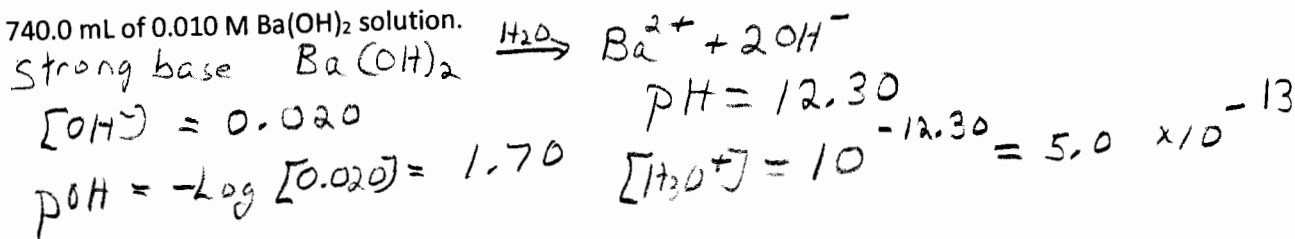 740.0 mL of 0.010 M Ba(OH)₂ solution.
Strong base Ba(OH)₂ —H₂O→ Ba²⁺ + 2OH⁻
[OH⁻) = 0.020
pH = 12.30
pOH = -Log [0.020] = 1.70
[H₃O⁺] = 10⁻¹²·³⁰ = 5.0 x10⁻¹³